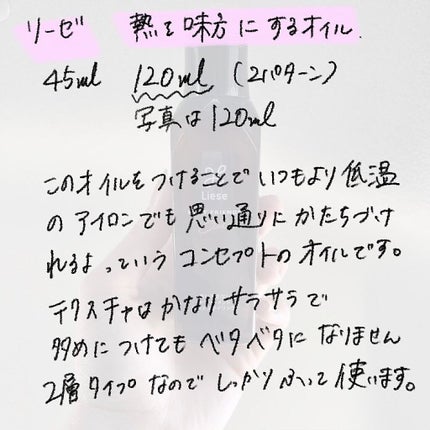 リーゼ 熱を味方にするオイル.
45ml 120ml (2パターン)
写真は120ml
Liese
このオイルをつけることでいつもより低温
のアイロンでも思い通りにかたちづけ
れるよっていうコンセプトのオイルです。
テクスチャはかなりサラサラで
多めにつけてもベタベタになりません
2層タイプなのでしっかりふって使います。